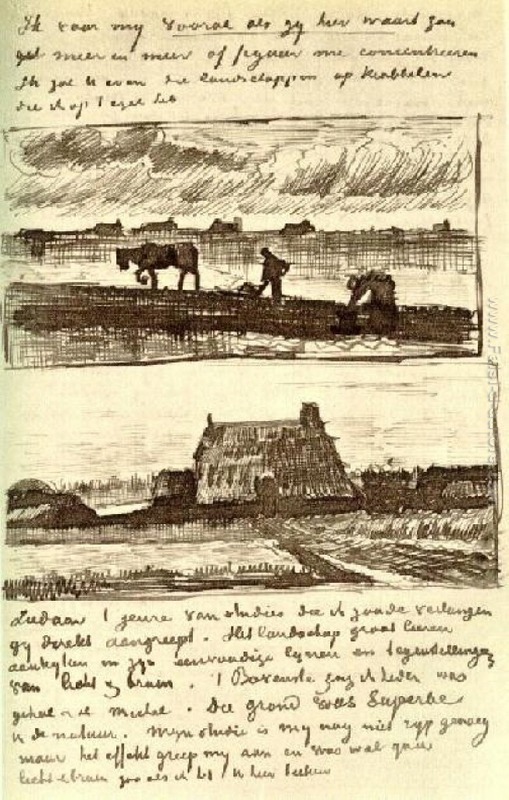 Ik voor my vooral als gy hier waart zou
meer en meer of figuur me concentreeren
Ik zal U even die landschappen op krabbelen
die ik op 't ezel heb
Ziedaar 't genre van studies die ik zoude verlangen
gy direkt aangreept. Het landschap groot leeren
aankyken in zyn eenvoudige lynen en tegenstellingen
van licht & bruin. 't Bovenste zag ik heden was
geheel Michel. Die grond was Superbe
in de natuur. Myn studie is my nog niet ryp genoeg
maar het effekt greep my aan en was wel
licht & bruin zoo als ik het U hier teeken